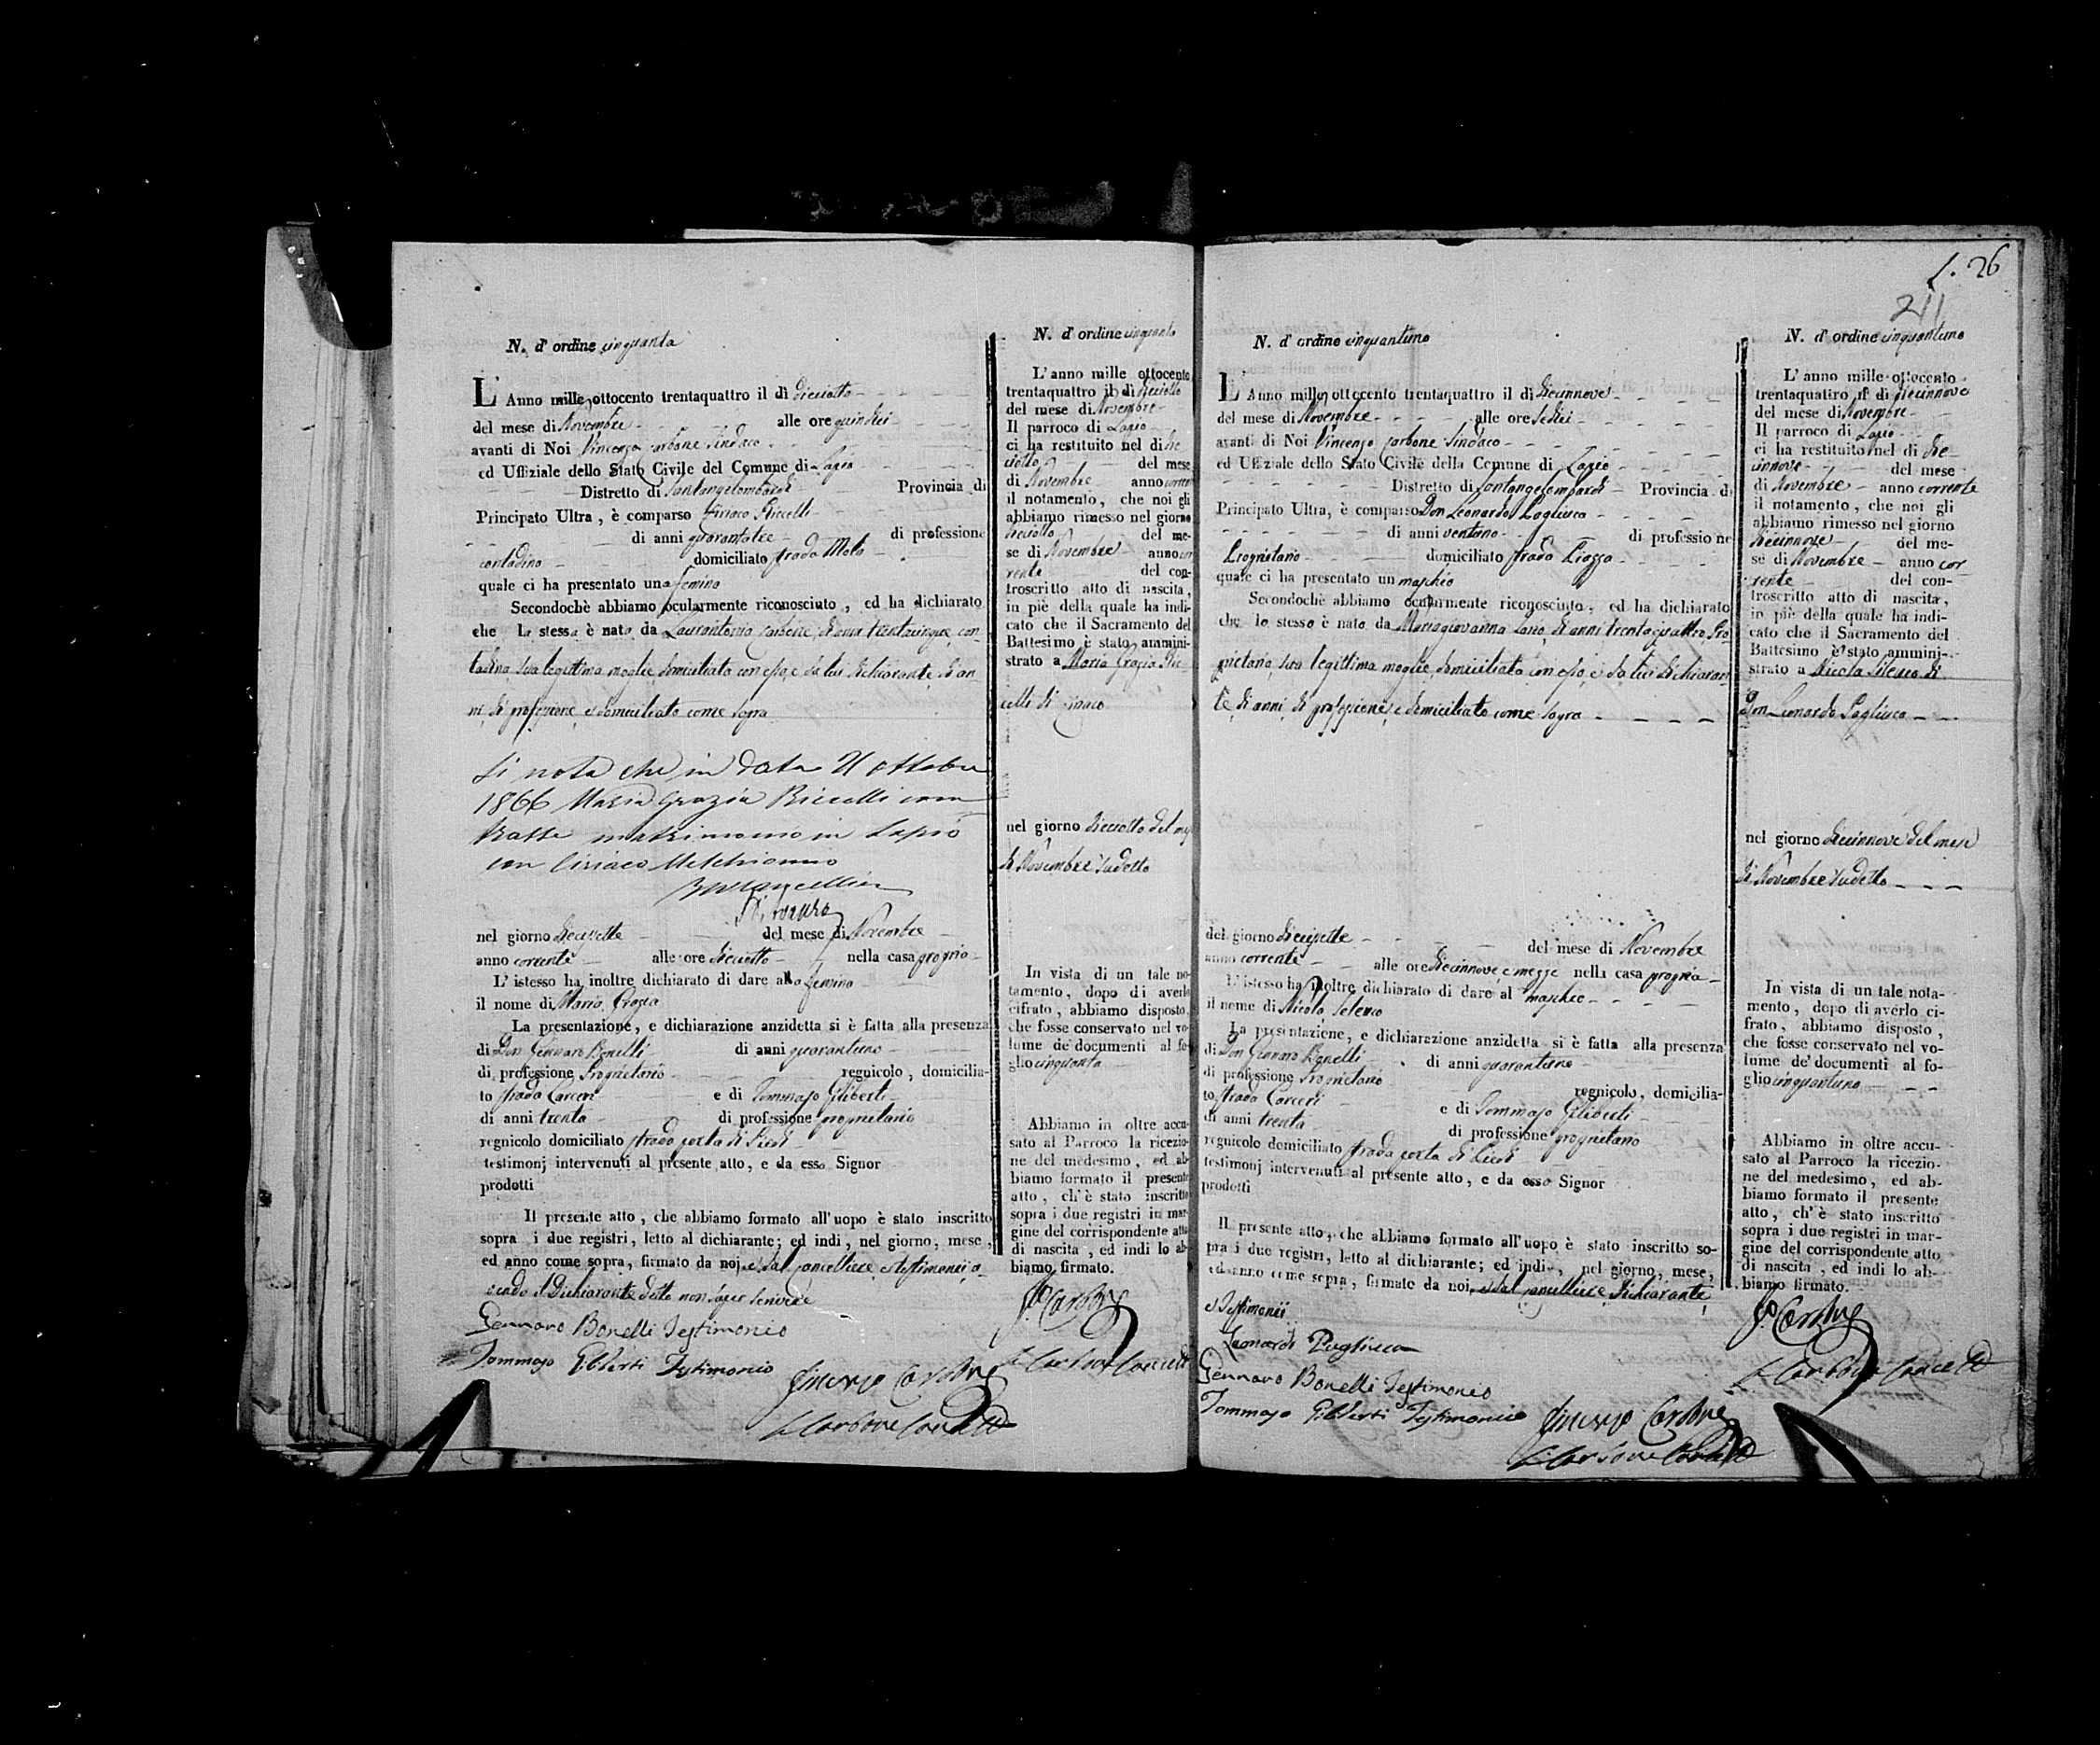 N. d' ordine cinquanta
L' Anno mille ottocento trentaquattro il dì dieciotto
del mese di Novembre alle ore quindici
avanti di Noi Vincenzo Carbone Sindaco
ed Uffiziale dello Stato Civile del Comune di Lapio
Distretto di Santangelombardi Provincia di
Principato Ultra, è comparso Ciriaco Riccelli
di anni quarantatre di professione
contadino domiciliato strada Mola
quale ci ha presentato una femina
Secondochè abbiamo ocularmente riconosciuto, ed ha dichiarato
che la stessa è nata da Laurantonia Carbone, di anni trentacinque, con
tadina, sua legittima moglie, domiciliata con esso, e da lui dichiarante, di an
ni, di professione, e domiciliato come sopra
Si nota che in data 21 ottobre
1866 Maria Grazia Riccelli con
trasse matrimonio in Lapio
con Ciriaco Melchionno
nel giorno diecisette del mese di Novembre
anno corrente alle ore dieciotto nella casa propria
L' istesso ha inoltre dichiarato di dare alla femina
il nome di Maria Grazia
La presentazione, e dichiarazione anzidetta si è fatta alla presenza
di Don Gennaro Bonelli di anni quarantuno
di professione Proprietario regnicolo, domicilia-
to strada Carceri e di Tommaso Giliberti
di anni trenta di professione proprietario
regnicolo domiciliato strada porta di
testimonj intervenuti al presente atto, e da esso Signor
prodotti
Il presente atto, che abbiamo formato all'uopo è stato inscritto
sopra i due registri, letto al dichiarante; ed indi, nel giorno, mese,
ed anno come sopra, firmato da noi, e dal Cancelliere e Testimonii, a-
vendo il Dichiarante detto non saper scrivere
Gennaro Bonelli Testimonio
Tommaso Giliberti Testimonio
Vincenzo Carbone
Carbone Cancell
N. d' ordine cinquanta
L' anno mille ottocento
trentaquattro il dì dieciotto
del mese di Novembre
Il parroco di Lapio
ci ha restituito nel dì die
ciotto del mese
di Novembre anno corren
il notamento, che noi gli
abbiamo rimesso nel giorno
dieciotto del me-
se di Novembre anno cor
rente del con-
troscritto atto di nascita,
in piè della quale ha indi-
cato che il Sacramento del
Battesimo è stato ammini-
strato a Maria Grazia Ric
celli di Ciriaco
nel giorno dieciotto del mese
di Novembre sudetto
In vista di un tale no-
tamento, dopo di averlo
cifrato, abbiamo disposto,
che fosse conservato nel vo-
lume de' documenti al fo-
glio cinquanta
Abbiamo in oltre accu-
sato al Parroco la ricezio-
ne del medesimo, ed ab-
biamo formato il presente
atto, ch' è stato inscritto
sopra i due registri in mar-
gine del corrispondente atto
di nascita, ed indi lo ab-
biamo firmato.
Carbone
Carbone Cancell
f. 26
211
N. d' ordine cinquantuno
L' Anno mille ottocento trentaquattro il dì diecinnove
del mese di Novembre alle ore sedici
avanti di Noi Vincenzo Carbone Sindaco
ed Uffiziale dello Stato Civile della Comune di Lapio
Distretto di Santangelombardi Provincia di
Principato Ultra, è comparso Don Leonardo Pagliuca
di anni ventuno di professione
Proprietario domiciliato strada Piazza
quale ci ha presentato un maschio
Secondochè abbiamo ocularmente riconosciuto, ed ha dichiarato
che lo stesso è nato da Mariagiovanna di anni trentaquattro, Pro
pietaria, sua legittima moglie, domiciliata con esso, e da lui dichiaran
te, di anni, di professione, e domiciliato come sopra
del giorno diecisette del mese di Novembre
anno corrente alle ore diecinnove, e mezze nella casa propria
L' istesso ha inoltre dichiarato di dare al maschio
il nome di Nicola
La presentazione, e dichiarazione anzidetta si è fatta alla presenza
di Don Gennaro Bonelli di anni quarantuno
di professione Proprietario regnicolo, domicilia-
to strada Carceri e di Tommaso Giliberti
di anni trenta di professione proprietario
regnicolo domiciliato strada porta di
testimonj intervenuti al presente atto, e da esso Signor
prodotti
Il presente atto, che abbiamo formato all'uopo è stato inscritto so-
pra i due registri, letto al dichiarante; ed indi, nel giorno, mese,
ed anno come sopra, firmato da noi, e dal Cancelliere Dichiarante
e Testimonii
Leonardo Pagliuca
Gennaro Bonelli Testimonio
Tommaso Giliberti Testimonio
Vincenzo Carbone
Carbone Cancell
N. d' ordine cinquantuno
L' anno mille ottocento
trentaquattro il dì diecinnove
del mese di Novembre
Il parroco di Lapio
ci ha restituito nel dì die-
cinnove del mese
di Novembre anno corrente
il notamento, che noi gli
abbiamo rimesso nel giorno
diecinnove del me-
se di Novembre anno cor
rente del con-
troscritto atto di nascita,
in piè della quale ha indi-
cato che il Sacramento del
Battesimo è stato ammini-
strato a Nicola di
Don Leonardo Pagliuca
nel giorno diecinnove del mese
di Novembre sudetto
In vista di un tale nota-
mento, dopo di averlo ci-
frato, abbiamo disposto,
che fosse conservato nel vo-
lume de' documenti al fo-
glio cinquantuno
Abbiamo in oltre accu-
sato al Parroco la ricezio-
ne del medesimo, ed ab-
biamo formato il presente
atto, ch' è stato inscritto
sopra i due registri in mar-
gine del corrispondente atto
di nascita, ed indi lo ab-
biamo firmato.
Carbone
Carbone Cancell